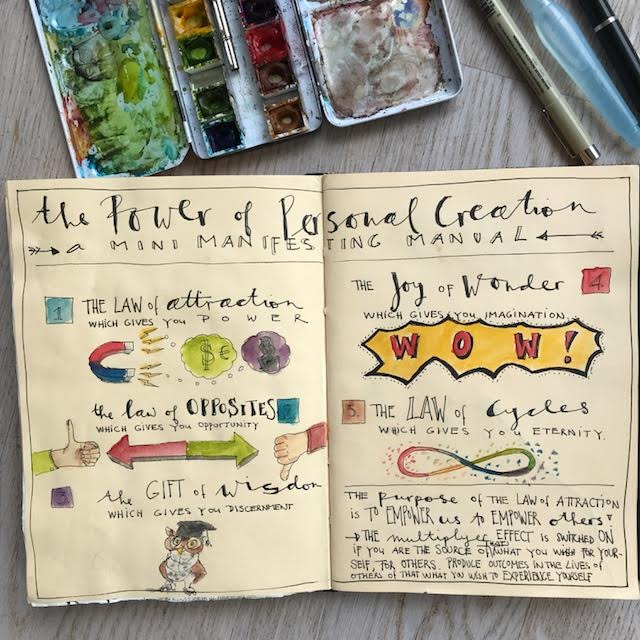 the Power of Personal Creation
a MINI MANIFESTING MANUAL
1 THE LAW of attraction
WHICH GIVES YOU POWER
$ €
the law of OPPOSITES 2
WHICH GIVES YOU OPPORTUNITY
3 the GIFT of wisdom
WHICH GIVES YOU DISCERNMENT
THE Joy of Wonder 4.
WHICH GIVES YOU IMAGINATION.
WOW!
5. THE LAW of Cycles
WHICH GIVES YOU ETERNITY.
THE purpose OF THE LAW OF ATTRACTION
is TO EMPOWER us to EMPOWER others
THE multiplyer EFFECT is SWITCHED ON
IF YOU ARE THE SOURCE OF WHAT YOU WISH FOR YOUR-
SELF, FOR OTHERS. PRODUCE OUTCOMES IN THE LIVES OF
OTHERS OF THAT WHAT YOU WISH TO EXPERIENCE YOURSELF